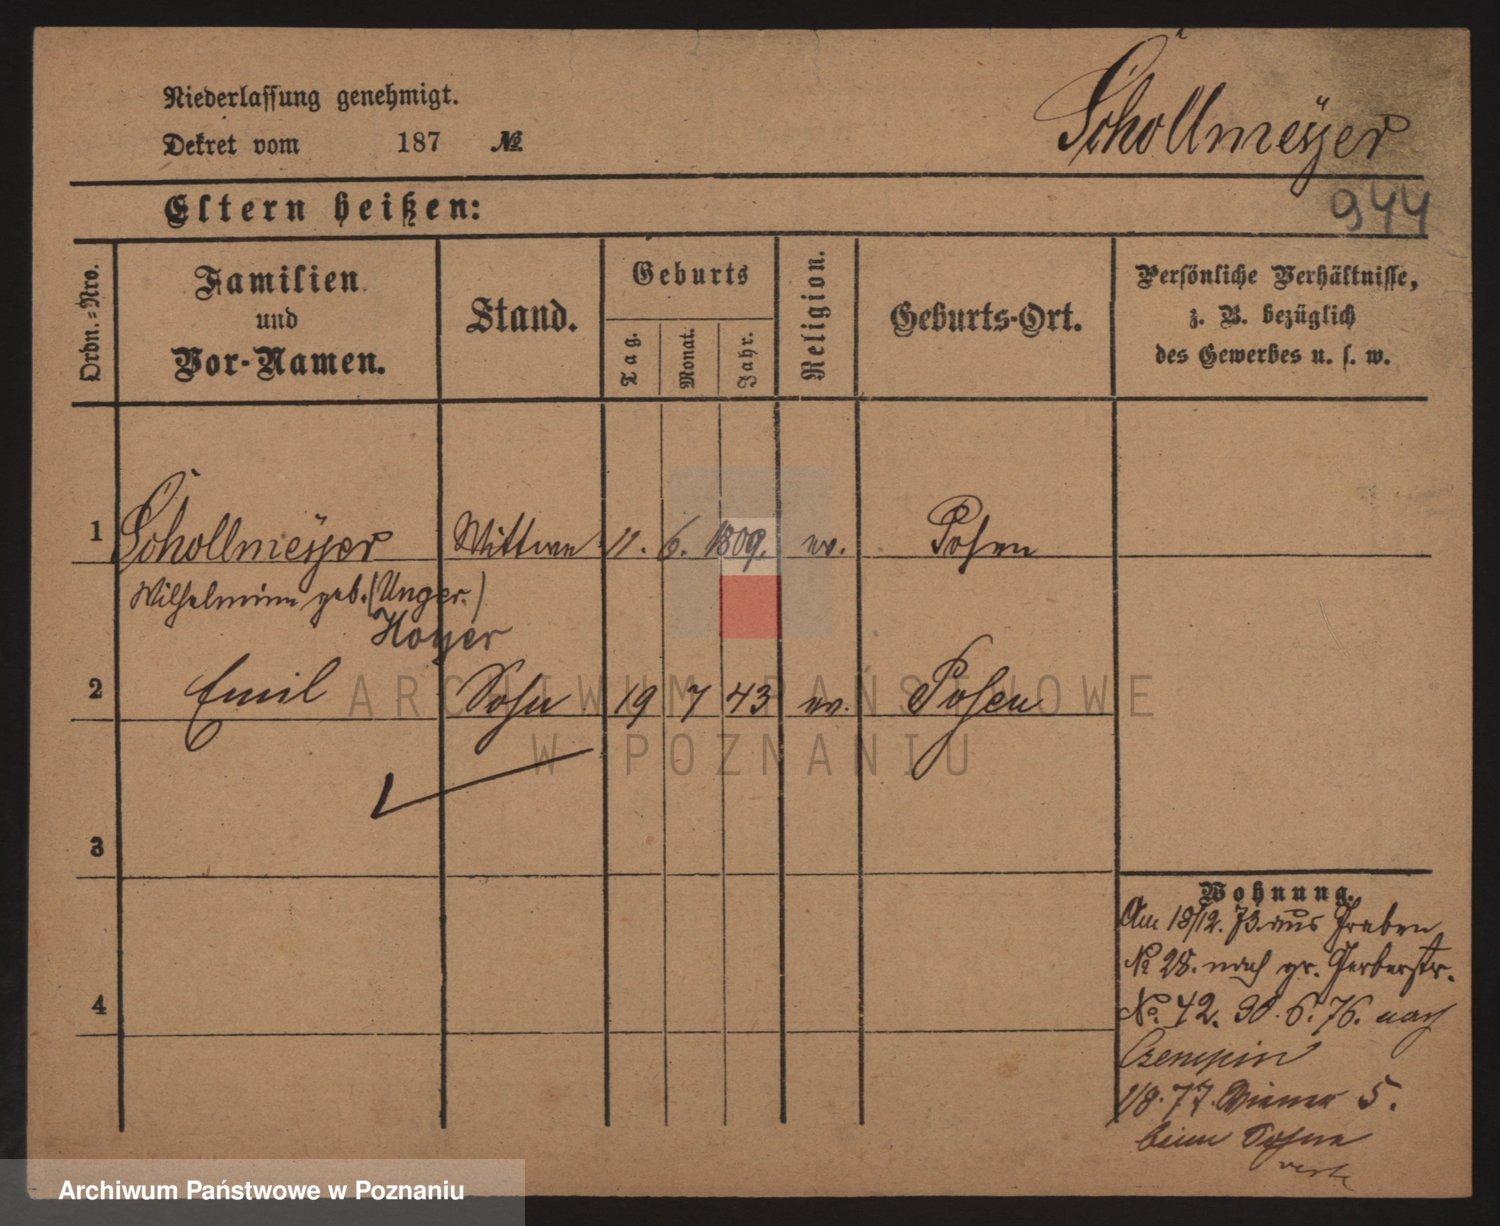 Schollmeyer
Niederlassung genehmigt.
Dekret vom 187 №
944
Eltern heißen:
Ordn.=Nro.
Familien
und
Vor-Namen.
Stand.
Geburts
Tag.
Monat.
Jahr.
Religion.
Geburts-Ort.
Persönliche Verhältnisse,
z. B. bezüglich
des Gewerbes u. s. w.
1 Schollmeyer Wittwe 11. 6. 1809. ev. Posen
Wilhelmine geb. (Unger.)
Hoyer
2 Emil Sohn 19 7 43 ev. Posen
3
4
Wohnung.
Am 18/12. 73. aus Graben
№ 28. nach gr. Gerberstr.
№ 42. 30. 6. 76. nach
Czempin
1/8. 77. Wiener 5.
beim Sohne
ARCHIWUM PAŃSTWOWE
W POZNANIU
Archiwum Państwowe w Poznaniu